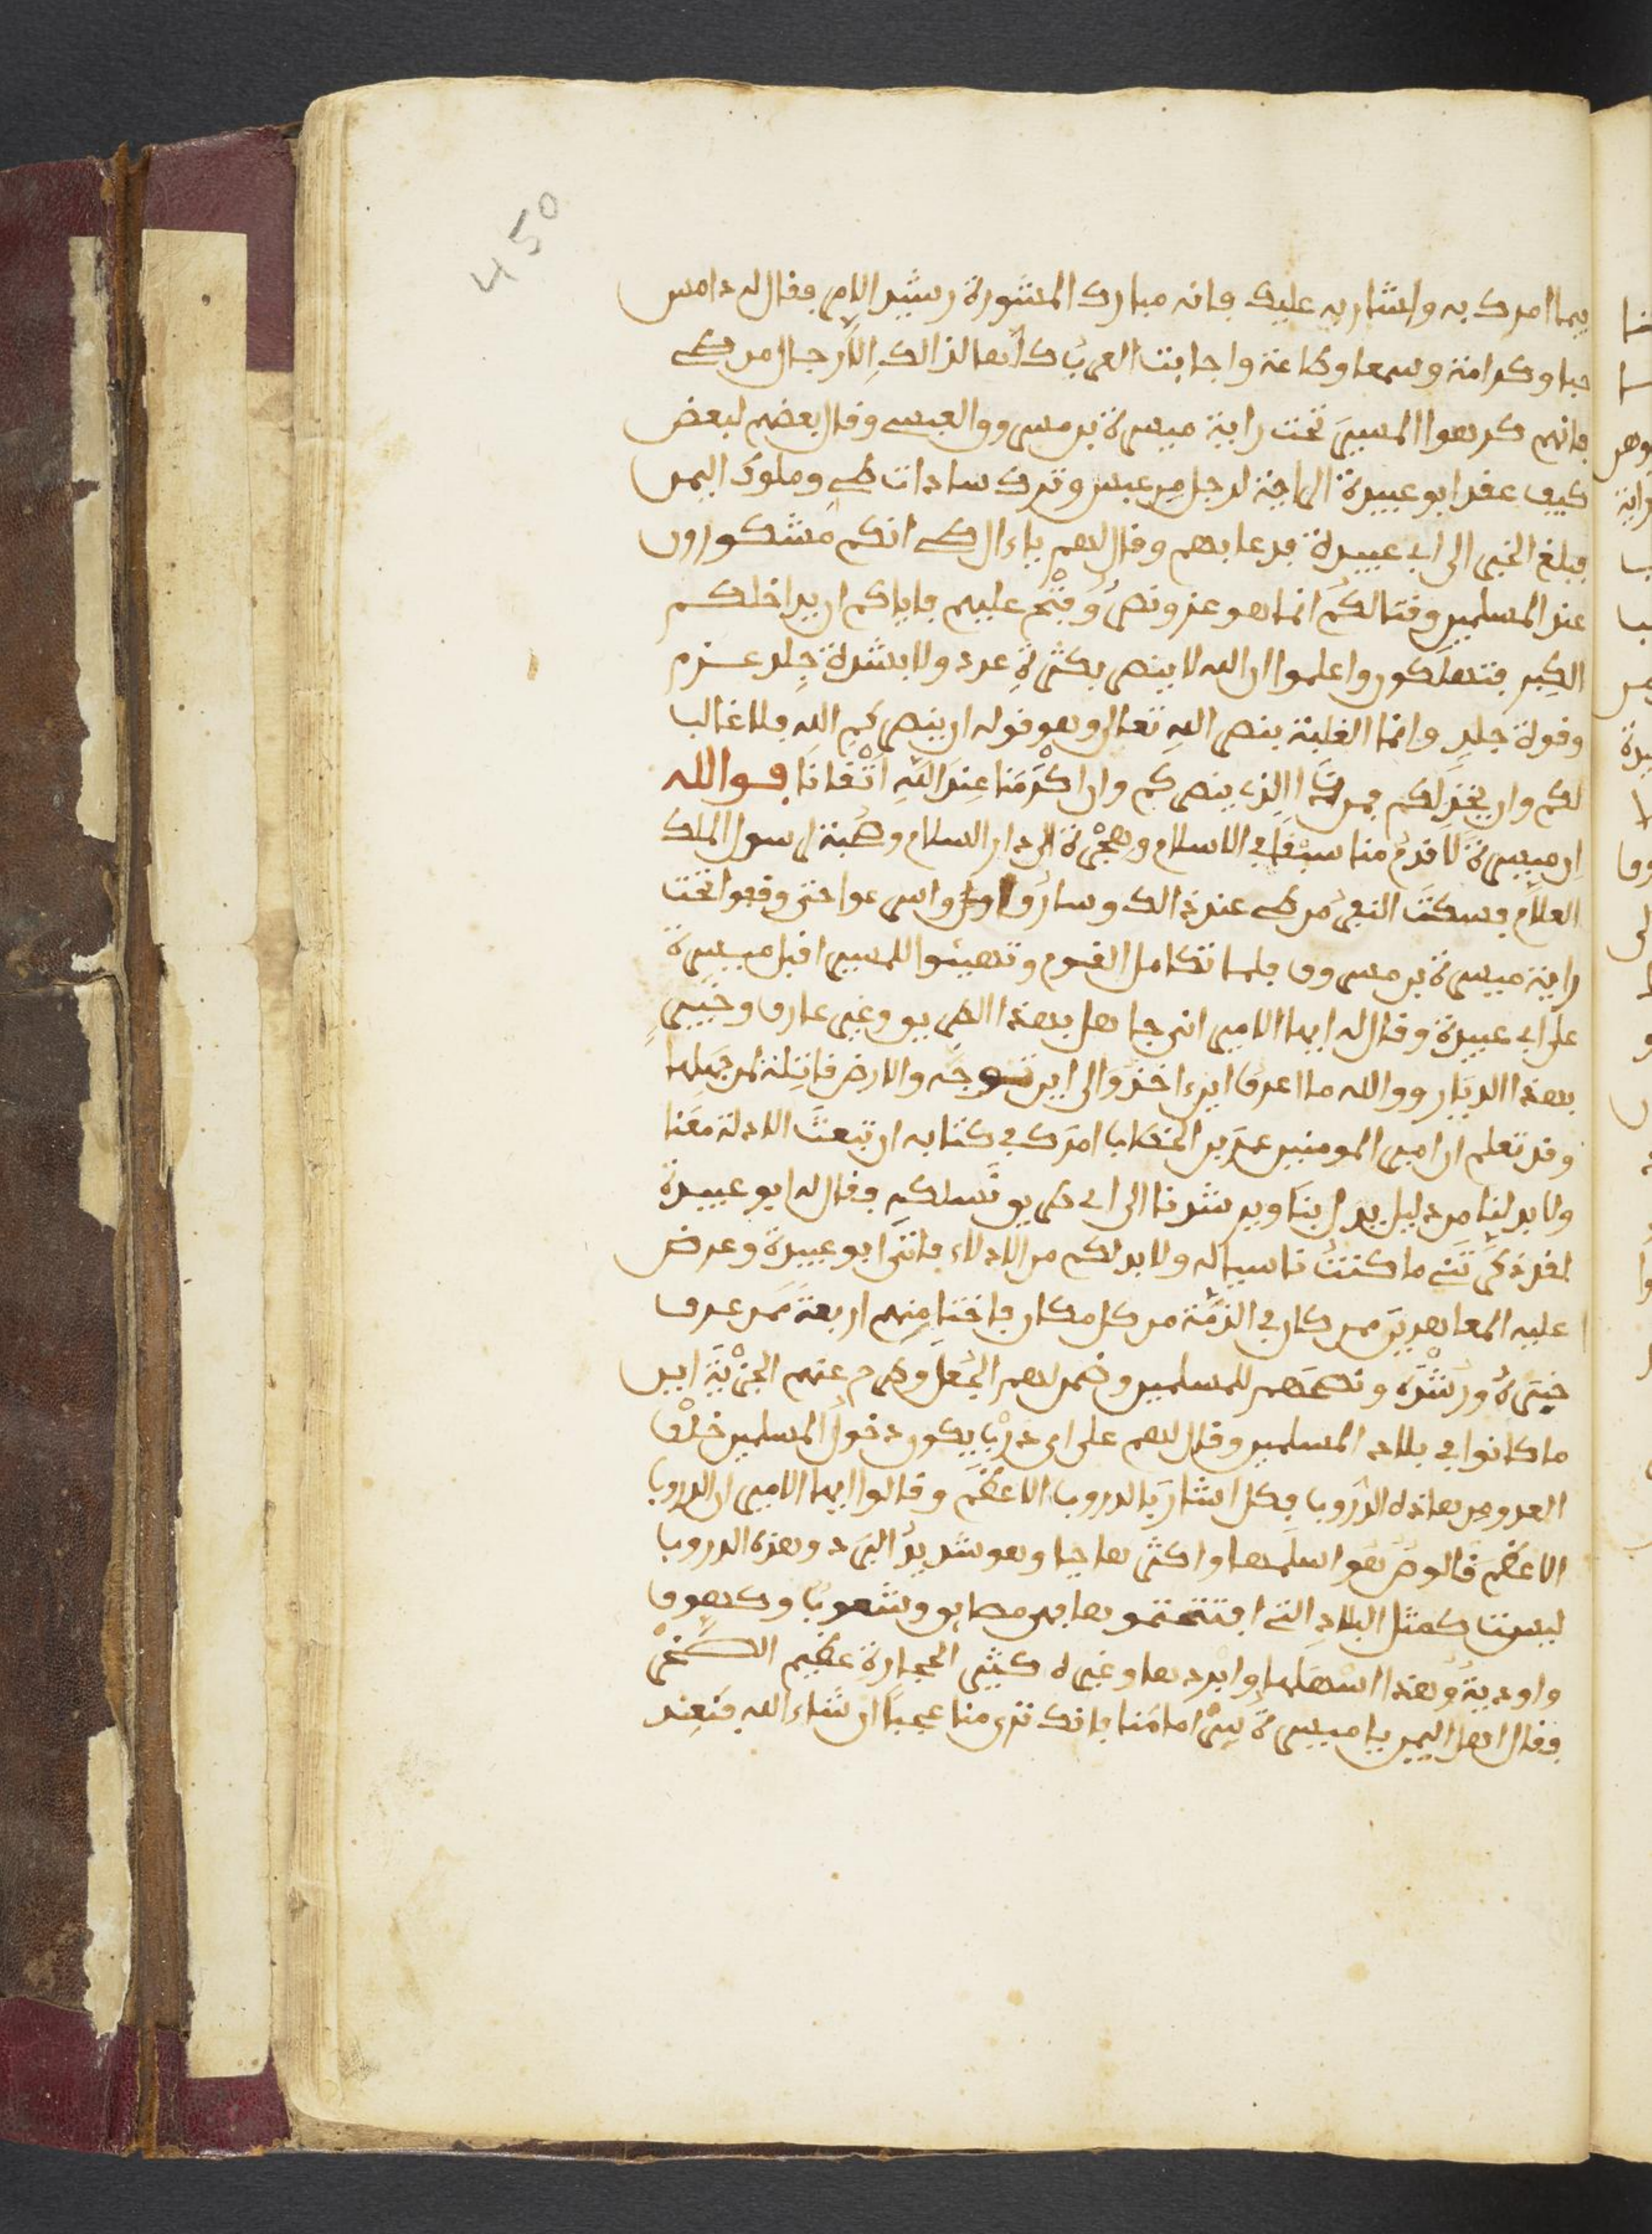 450
بيما امرك به واشار به عليك بانه مبارك المشورة رشيد الامر فقال له دامس
حبا وكرامة وسمعا وطاعة واجابت العرب كلها لذالك الا رجال من طي
فانهم كرهوا المسير تحت راية ميسرة بن مسروق العبسي وقال بعضهم لبعض
كيف عقد ابو عبيدة الراية لرجل من عبس وترك سادات طي وملوك اليمن
فبلغ الخبر الى ابي عبيدة فدعا بهم وقال لهم ياءال طي انكم مشكورون
عند المسلمين وقتالكم انما هو عز ونصر وفتح عليهم فاياكم ان يداخلكم
الكبر فتهلكون واعلموا ان الله لا ينصر بكثرة عدد ولا بشدة جلد عزم
وقوة جلد وانما الغلبة بنصر الله تعالى وهو قوله ان ينصركم الله فلا غالب
لكم وان يخذلكم فمن ذا الذي ينصركم وان اكرمنا عند الله اتقانا فوالله
ان ميسرة لاقدم منا سبقا في الاسلام وهجرة الى دار السلام وصحبة رسول الملك
العلام فسكت النفر من طي عند ذالك وساروا واسرعوا حتى وقفوا تحت
راية ميسرة بن مسروق فلما تكامل القوم وتهيئوا للمسير اقبل ميسرة
على ابي عبيدة وقال له ايها الامير اني جاهل بهذا الطريق وغير عارف وخبير
بهذا الديار ووالله ما اعرف اين ءاخذ والى اين توجه والارض قاتلة لمن جهلها
وقد تعلم ان امير المومنين عمر بن الخطاب امرك في كتابه ان تبعث الادلة معنا
ولا بد لنا من دليل يدل بنا ويرشدنا الى اي طريق نسلكه فقال له ابو عبيدة
لقد ذكرتني ما كنت ناسيا له ولا بد لكم من الادلاء فاتى ابو عبيدة وعرض
عليه المعاهدين ممن كان في الذمة من كل مكان فاختار منهم اربعة ممن عرف
خبرة ورشدة ونصحهم للمسلمين وضمن لهم الجعل وطرح عنهم الجزية اين
ما كانوا في بلاد المسلمين وقال لهم على اي درب يكون دخول المسلمين خلف
العدو من هاذه الدروب فكل اشار بالدروب الاعظم وقالوا ايها الامير ان الدروب
الاعظم قالوا هو اسلمها واكثرها حيا وهو شديد البرد وهذه الدروب
ليست كمثل البلاد التي افتتحتموها فهي مضايق وشعوب وكهوف
واودية وهذا اسهلها وابردها وغيره كثير الحجارة عظيم الصخر
فقال اهل اليمن يا ميسرة سر امامنا فانك ترى منا عجبا ان شاء الله فعند